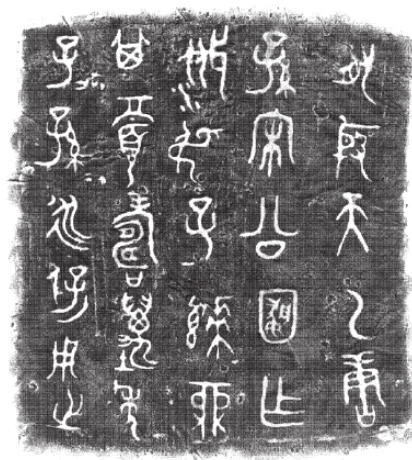 有殷天乙唐
孫宋公乍
叔子鼎
其眉壽萬年
子孫永保用之